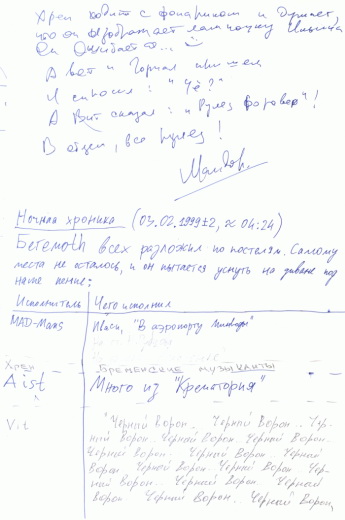 Хрен ходит с фонариком и думает,
что он изображает лампочку Ильича
Он ошибается...
А вот и Горыл пришел
И спросил: "Чё?"
А Вит сказал: "Рулез форевер"!
В общем, все рулез!
Ночная хроника (03.02.1999±2, ≈ 04:24)
Бегемоth всех разложил по постелям. Самому
места не осталось, и он пытается уснуть на диване под
наше пение:
Исполнитель Что исполнил
MAD-Maks Иваси, "В аэропорту
Хрен Бременские музыканты
Aist Много из "Крематория"
Vit "Черный Ворон.. Черный Ворон... Чер-
ный Ворон... Черный Ворон.. Черный Ворон..
Черный Ворон.. Черный Ворон.. Черный
Ворон.. Черный Ворон.. Черный Ворон.. Чер-
ный Ворон.. Черный Ворон.. Черный
Ворон Черный Ворон.. Черный Ворон,